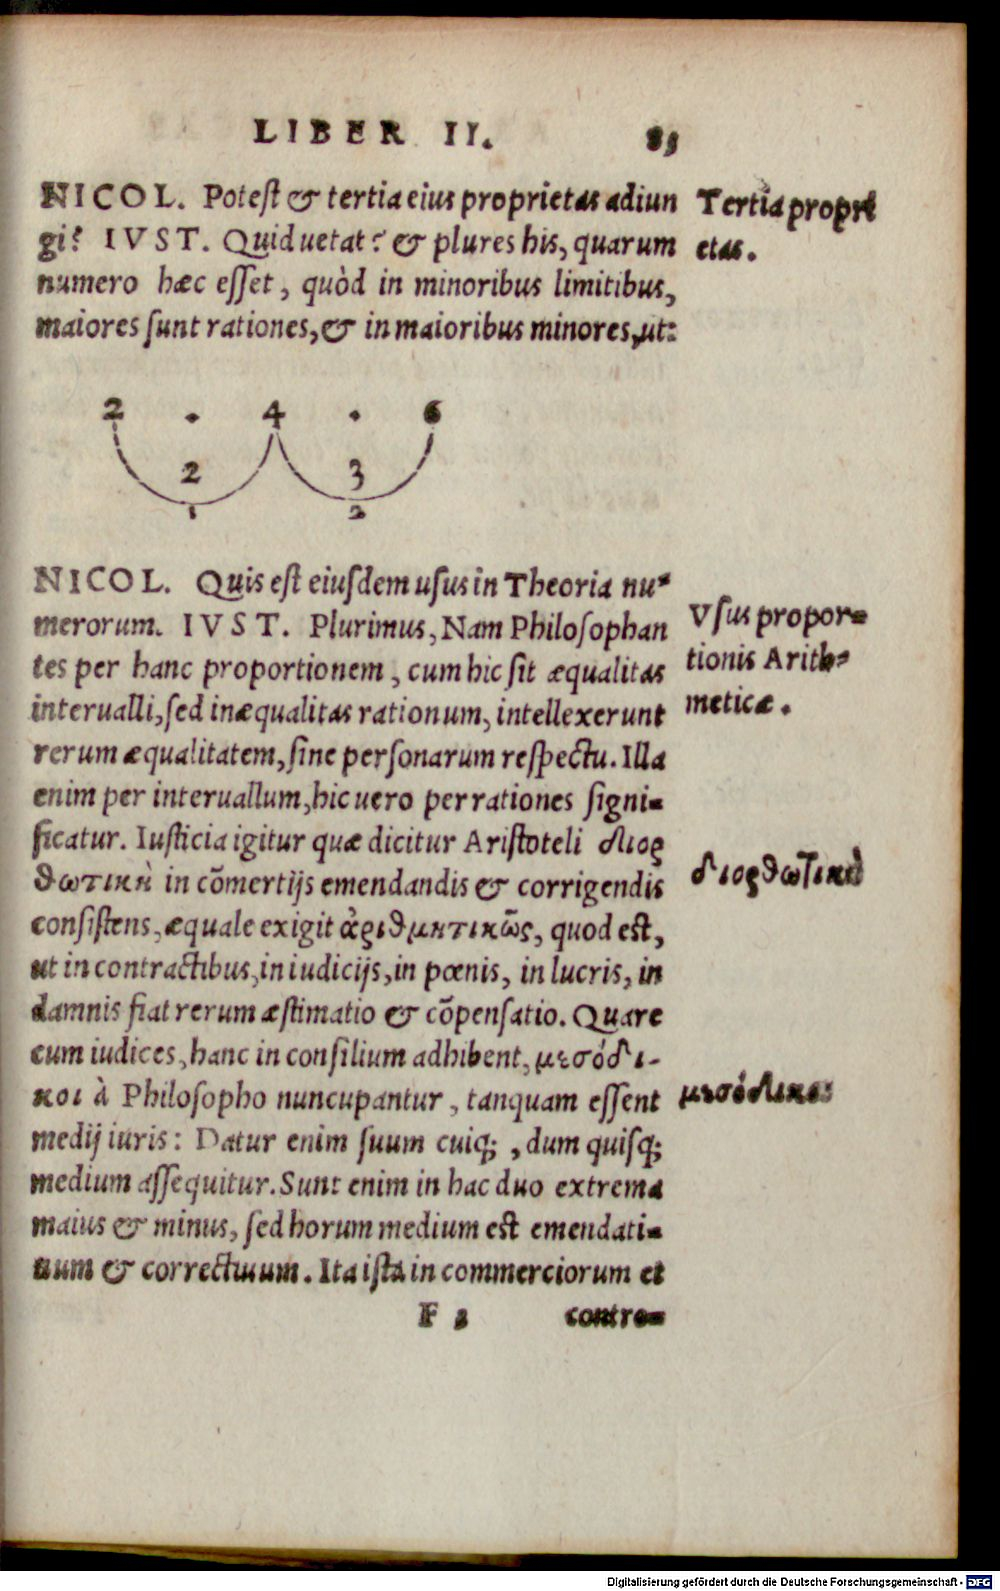 LIBER II. 83
NICOL. Poteſt & tertia eius proprietas adiun
gi? IVST. Quid uetat? & plures his, quarum
numero hæc eſſet, quòd in minoribus limitibus,
maiores ſunt rationes, & in maioribus minores, ut:
Tertia propri
etas.
2 . 4 . 6
2 3
1 2
NICOL. Quis eſt eiuſdem uſus in Theoria nu-
merorum. IVST. Plurimus, Nam Philoſophan
tes per hanc proportionem, cum hic ſit æqualitas
interualli, ſed inæqualitas rationum, intellexerunt
rerum æqualitatem, ſine perſonarum reſpectu. Illa
enim per interuallum, hic uero per rationes ſigni-
ficatur. Iuſticia igitur quæ dicitur Ariſtoteli διορ
θωτικὴ in cõmertijs emendandis & corrigendis
conſiſtens, æquale exigit ἀριθμητικῶς, quod eſt,
ut in contractibus, in iudicijs, in pœnis, in lucris, in
damnis fiat rerum æſtimatio & cõpenſatio. Quare
cum iudices, hanc in conſilium adhibent, μεσόδι-
κοι à Philoſopho nuncupantur, tanquam eſſent
medij iuris: Datur enim ſuum cuiq;, dum quiſq;
medium aſſequitur. Sunt enim in hac duo extrema
maius & minus, ſed horum medium eſt emendati-
uum & correctiuum. Ita iſta in commerciorum et
Vſus propor-
tionis Arith-
meticæ.
διορθωτικὴ
μεσόδικοι
F 2 contra-
Digitalisierung gefördert durch die Deutsche Forschungsgemeinschaft - DFG